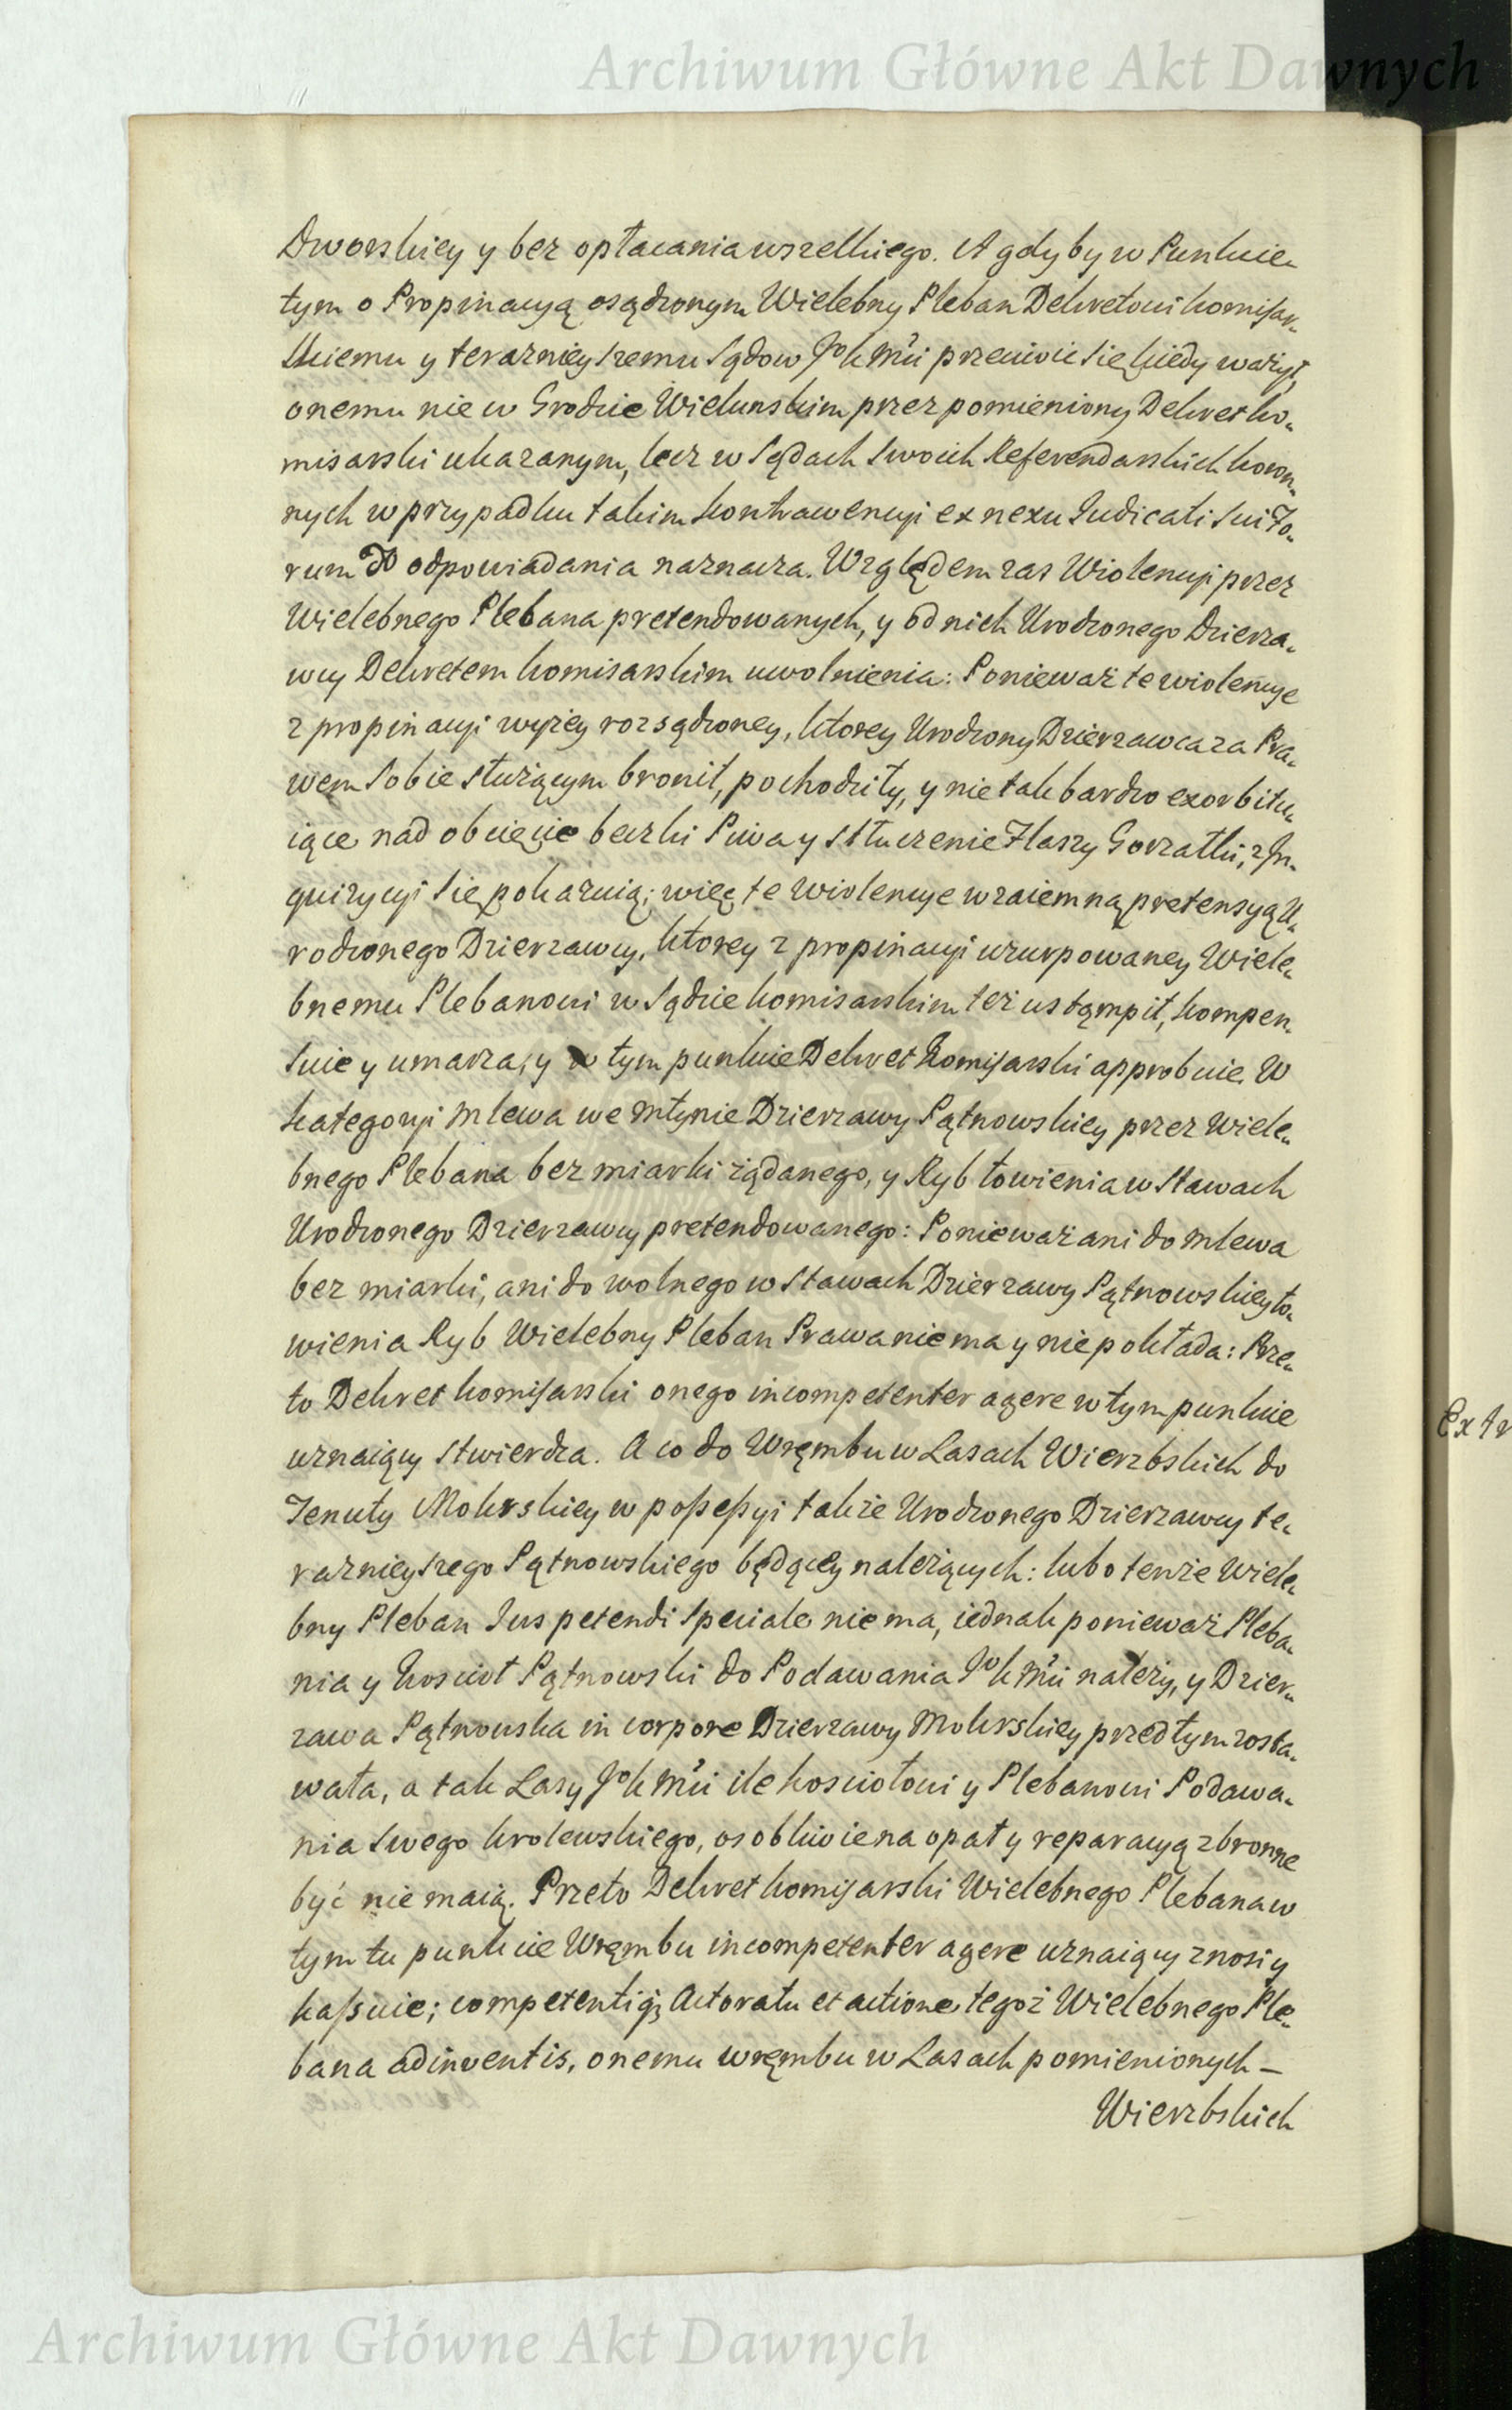 Archiwum Główne Akt Dawnych
Dworskiey y bez opłacania wszelkiego. A gdyby w Punkcie
tym o Propinacyą osądzonym Wielebny Pleban Dekretowi komisar-
skiemu y teraznieyszemu Sądow JoKMci przeciwić się kiedy ważył,
onemu nie w Grodzie Wielunskim przez pomieniony Dekret ko-
misarski ukazanym, lecz w Sądach Swoich Referendarskich koron-
nych w przypadku takim kontrawencyi ex nexu Iudicati sui Fo-
rum do odpowiadania naznacza. Względem zas Wiolencyi przez
Wielebnego Plebana pretendowanych, y od nich Urodzonego Dzierza-
wcy Dekretem komisarskim uwolnienia: Ponieważ te wiolencye
z propinacyi wyżey rozsądzoney, ktorey Urodzony Dzierzawca za Pra-
wem Sobie służącym bronił, pochodziły, y nie tak bardzo exorbitu-
iące nad obcięcie beczki Piwa y stłuczenie Flaszy Gorzałki, z In-
quizycyi się pokazuią; więc te wiolencye wzaiemną pretensyą U-
rodzonego Dzierzawcy, ktorey z propinacyi uzurpowaney Wiele-
bnemu Plebanowi w Sądzie komisarskim też ustąmpił, kompen-
suie y umarza, y w tym punkcie Dekret Komisarski approbuie. W
kategoryi mlewa we młynie Dzierzawy Pątnowskiey przez Wiele-
bnego Plebana bez miarki żądanego, y Ryb łowienia w Stawach
Urodzonego Dzierzawcy pretendowanego: Ponieważ ani do mlewa
bez miarki, ani do wolnego w Stawach Dzierzawy Pątnowskiey ło-
wienia Ryb Wielebny Pleban Prawa nie ma y nie pokłada: Prze-
to Dekret komisarski onego incompetenter agere w tym punkcie
uznaiący stwierdza. A co do Wrębmu w Lasach Wierzbskich do
Tenuty Mokrskiey w possessyi także Urodzonego Dzierzawcy te-
raznieyszego Pątnowskiego będącey należących: lubo tenże Wiele-
bny Pleban Ius petendi speciale nie ma, iednak ponieważ Pleba-
nia y koscioł Pątnowski do Podawania JoKMci należy, y Dzier-
zawa Pątnowska in corpore Dzierzawy Mokrskiey przed tym zosta-
wała, a tak Lasy JoKMci ile kosciołowi y Plebanowi Podawa-
nia swego krolewskiego, osobliwie na opał y reparacyą zbronne
być nie maią. Przeto Dekret komisarski Wielebnego Plebana w
tym tu punkcie Wrębmu incompetenter agere uznaiący znosi y
kassuie; competentiją Actoratu et actione tegoż Wielebnego Ple-
bana adinventis, onemu wręmbu w Lasach pomienionych —
Wierzbskich
Extr
Archiwum Główne Akt Dawnych